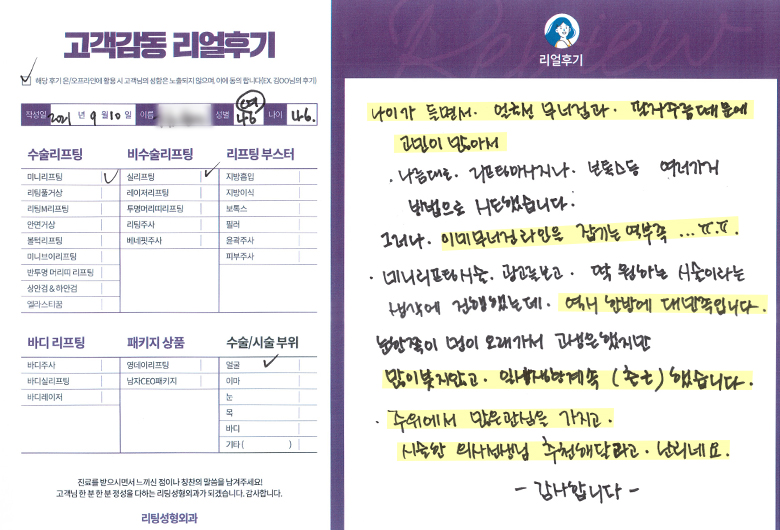 고객감동 리얼후기
해당 후기 온/오프라인에 활용 시 고객님의 성함은 노출되지 않으며, 이에 동의 합니다(EX. 김OO님의 후기)
작성일 2021 년 9 월 10 일 이름 성별 여 나이 46.
수술리프팅
미니리프팅
리팅풀거상
리팅M리프팅
안면거상
볼턱리프팅
미니브이리프팅
반투명 머리띠 리프팅
상안검 & 하안검
엘라스티꿈
비수술리프팅
실리프팅
레이저리프팅
투명머리띠리프팅
리팅주사
베네핏주사
리프팅 부스터
지방흡입
지방이식
보톡스
필러
윤곽주사
피부주사
바디 리프팅
바디주사
바디실리프팅
바디레이저
패키지 상품
영데이리프팅
남자CEO패키지
수술/시술 부위
얼굴
이마
눈
목
바디
기타 ( )
진료를 받으시면서 느끼신 점이나 칭찬의 말씀을 남겨주세요!
고객님 한 분 한 분 정성을 다하는 리팅성형외과가 되겠습니다. 감사합니다.
리팅성형외과
리얼후기
나이가 들면서. 얼굴선 무너짐과. 팔자주름때문에
고민이 많아서
. 나름대로. 리프팅마사지나. 보톡스등 여러가지
방법으로 시도했습니다.
그러나. 이미무너진라인은 잡기는 역부족 ... ㅠ.ㅠ.
· 미니리프팅시술. 광고를보고. 딱 원하는 시술이라는
생각에 진행했는데. 역시 한방에 대만족입니다.
왼쪽이 멍이 오래가서 고생은했지만
많이붓지않고. 일상생활계속 (출근) 했습니다.
· 주위에서 많은관심을 가지고.
시술한 의사선생님 추천해달라고. 난리네요.
- 감사합니다 -